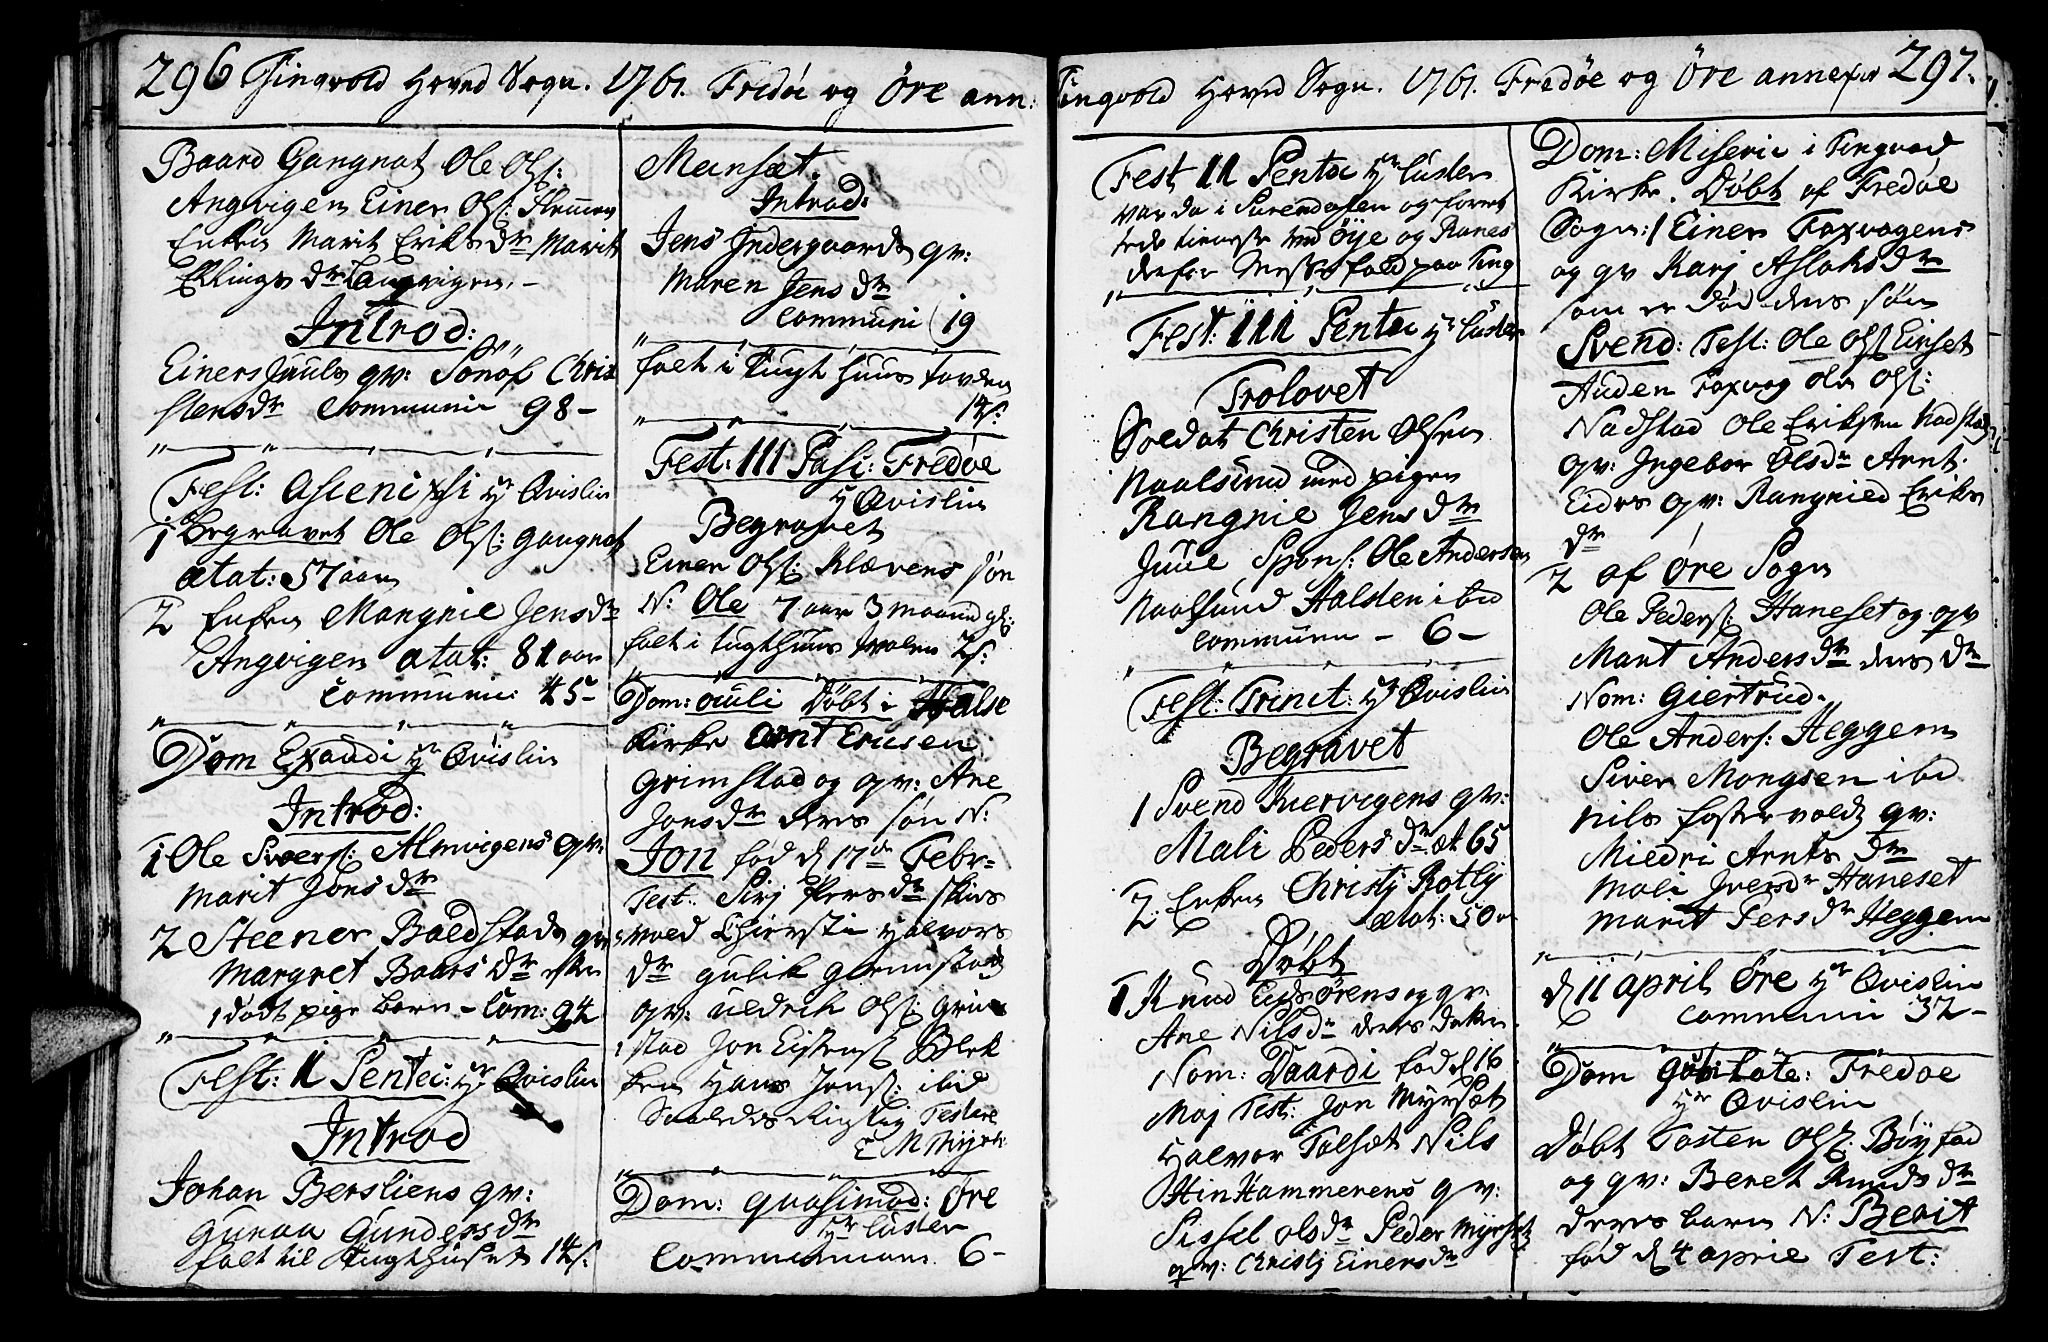 296 Tingvold Hoved Sogn. 1761. Fredöe og Öre ann:
Baard Gangnat Ole Ols:
Angvigen Einer Ols:
Enken Marit Eriks dr Marit
Ellings dr Langvigen. –
Introd:
Einers Juuls qv: Sönof Chri
stens dr Communi 98 –
Fest: Ascensi Hr Qvislin
1 Begravet Ole Ols: Gangnat
ætat: 57 aar
2 Enken Mangnie Jens dr
Angvigen ætat: 81 aar
Communi: 45 –
Dom Exaudi Hr Qvislin
Introd:
1 Ole Sivers: Almvigens qv:
Marit Jons dr
2 Steener Boedstads qv:
Margret Baars dr
1 dödt pige barn – Com: 94
Fest: II Pentec: Hr Qvislin
Introd
Johan Bersliens qv:
Gunaa Gunders dr
falt til Tugthuset 14 s:
Meisæt.
Introd:
Jens Indergaards qv:
Maren Jens dr
Communi 19
falt i Tugthuus tavlen
14 s:
Fest: III Pasc: Fredöe
Hr Qvislin
Begravet
Einer Ols: Klævens sön
N: Ole 7 aar 3 maaned gl:
falt i tugthuus tavlen 2 s:
Dom: Qvuli Döbt i Halse
Kirke Arnt Ericsen
Grimstad og qv: Ane
Jons dr deres sön N:
Jon föd d 17de Febr –
Test: Sirj Pers dr
vold Chiersti Halvors
dr Gulik Grimstads
qv: Uldrik Ols: Grim
stad Jon Eistens: Blek
ken Hans Jons: ibid
Testere
Dom: Quasimod: Öre
Hr Luster
Communicum 6 –
Tingvold Hoved Sogn. 1761. Fredöe og Öre annexer 297.
Fest II Pentec Hr Luster
var da i Surendalen og forret
tede tieneste ved Öye og Ranes
derfor Messefald paa Ting
Fest: III Pentec Hr Luster
Trolovet
Soldat Christen Olsen
Naalsund med pigen
Rangnie Jens dr
Juul Spons: Ole Andersen
Naalsund Halsten ibid
Communi – 6 –
Fest: Trinit: Hr Qvislin
Begravet
1 Svend Kiervigens qv:
Mali Peders dr æt 65
2 Enken Christj Rotlj
ætat: 50
Döbt
1 Knud Eidsörens og qv:
Ane Nils dr deres datter
Nom: Baardi föd d 16
Maj Test: Jon Myrsæt
Halvor Talsæt Nils
Hin Hammerens qv:
Sissel Ols dr Peder Myrsæt
qv: Christj Einers dr
Dom: Miseric i Tingvold
Kirke. Döbt af Fredöe
Sogn: 1 Einer Foxvogens
og qv Karj Aslaks dr
som er död deres sön
Svend: Test: Ole Ols Einset
Auden Foxvog Ole Ols:
Nadstad Ole Eriksen Nadstad
qv: Ingebor Ols dr Arnt
Eides qv: Rangnied Eriks
dr
2 af Öre Sogn
Ole Peders: Haneset og qv
Marit Anders dr deres dr
Nom: Giertrud.
Ole Anders: Heggem
Siver Mongsen ibid
Nils Fostervolds qv:
Miedri Arnts dr
Mali Ivers dr Haneset
Marit Pers dr Heggem
d 11 April Öre Hr Qvislin
Communi 32 –
Dom Jubilate: Fredöe
Hr Qvislin
Döbt Tosten Ols: Böyfod
og qv: Beret Knuds dr
deres barn N: Berit
föd d 4 aprie Test: